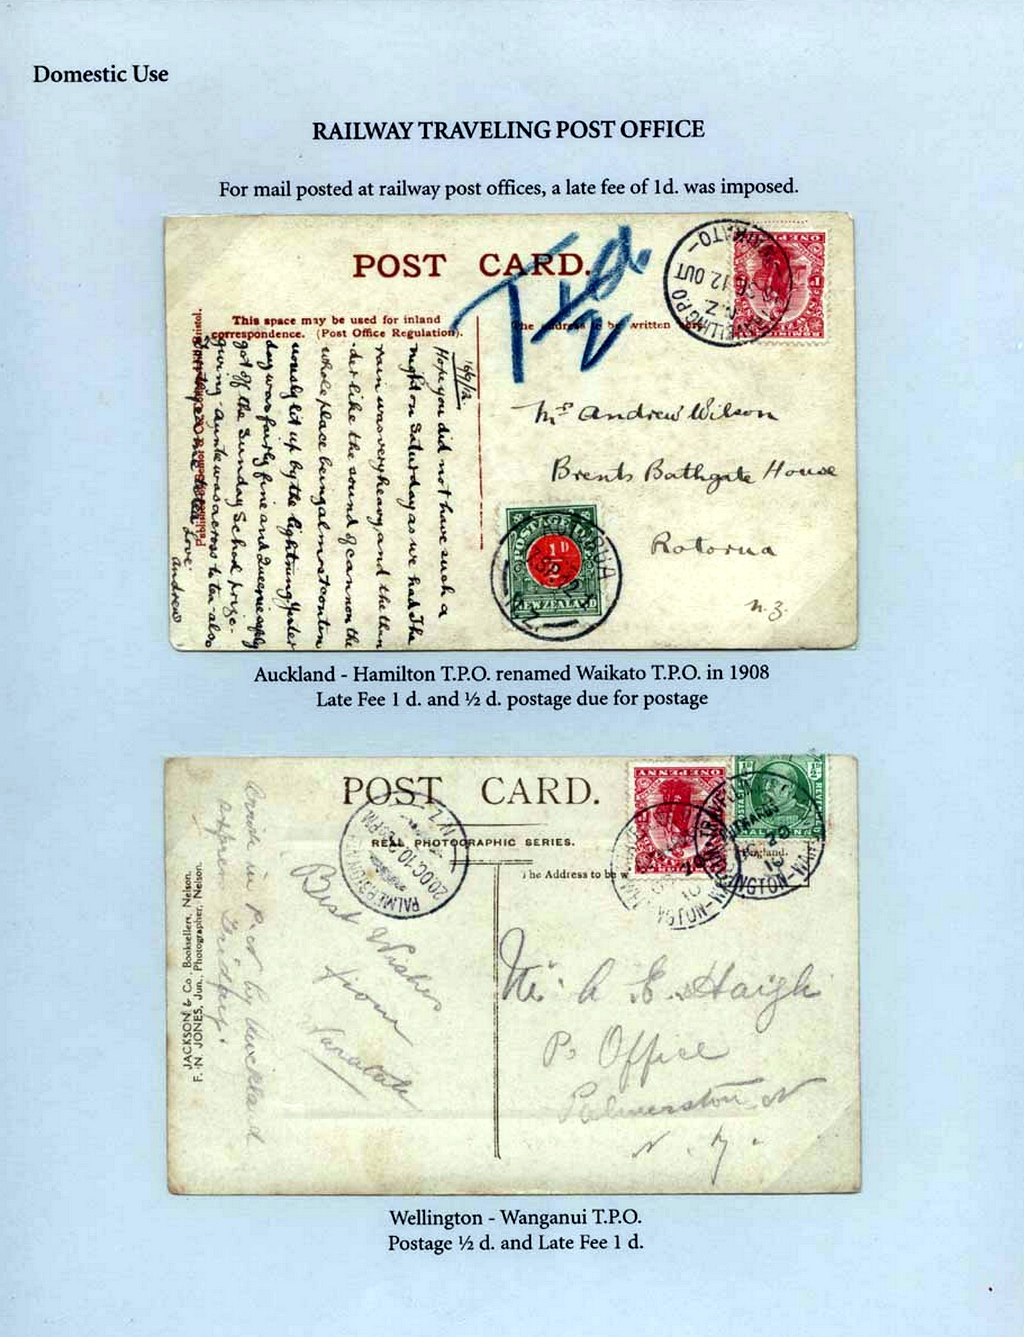 Domestic Use
RAILWAY TRAVELING POST OFFICE
For mail posted at railway post offices, a late fee of 1d. was imposed.
POST CARD.
This space may be used for inland
correspondence. (Post Office Regulation).
The address to be written here
T 1/2 d.
WAIKATO
OUT
N.Z.
ONE PENNY
16/9/12.
Hope you did not have such a
night on Saturday as we had. The
rain was very heavy and the thun
-der like the sound of cannon the
whole place being almost contin
uously lit up by the lightning. Yester
day was fairly fine and Queenie apply
got off the Sunday School prize-
giving. Auntie was across to tea also
Love
Andrew
Mr Andrew Wilson
Brents Bathgate House
Rotorua
N.Z.
POSTAGE DUE
1/2 D
NEW ZEALAND
Auckland - Hamilton T.P.O. renamed Waikato T.P.O. in 1908
Late Fee 1 d. and ½ d. postage due for postage
POST CARD.
REAL PHOTOGRAPHIC SERIES.
The Address to be w
England.
ONE PENNY
HALF PENNY
PALMERSTON NTH
20 OC 10
N.Z.
JACKSON & Co., Booksellers, Nelson.
F. N. JONES, Jun., Photographer, Nelson
Arrive in P.N by Auckland
express Friday.
Best Wishes
from
Mr. A. E. Haigh
P. Office
Palmerston N
N. Z.
Wellington - Wanganui T.P.O.
Postage ½ d. and Late Fee 1 d.